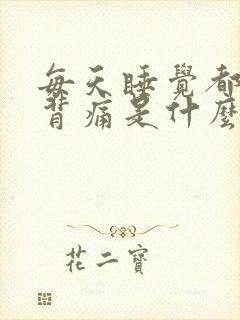 每天睡覺都
背痛是什麼
花二寶